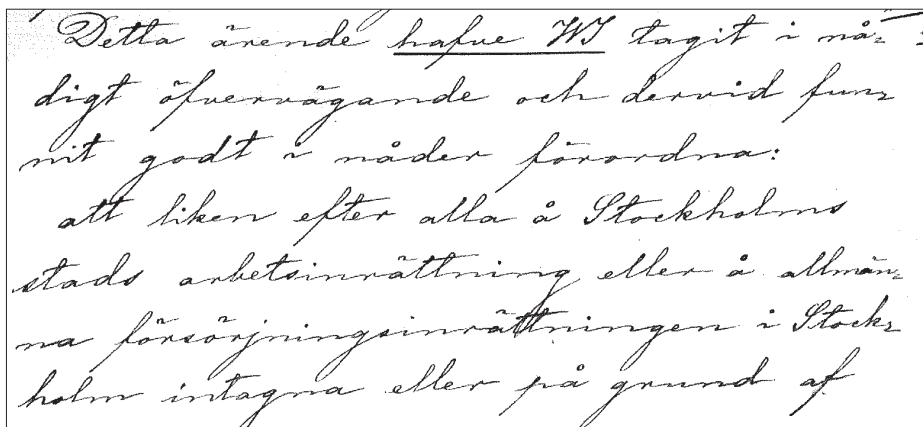 Detta ärende hafve WJ tagit i nå-
digt öfvervägande och dervid fun-
nit godt i nåder förordna:
att liken efter alla å Stockholms
stads arbetsinrättning eller å allmän-
na försörjningsinrättningen i Stock-
holm intagna eller på grund af